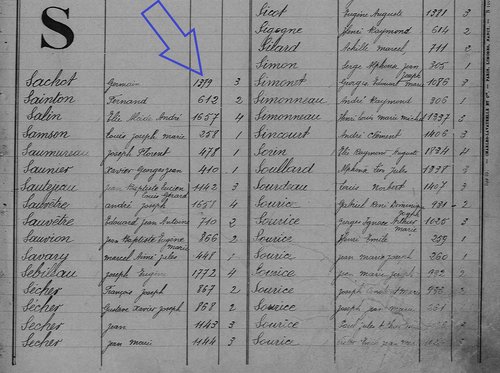 S
Sachot Germain 1379 3
Sainton Fernand 612 2
Salin Elie Aloïde André 1657 4
Samson Louis joseph marie 258 1
Saumureau Joseph Florent 478 1
Saunier Xavier Georges jean 410 1
Sautejau jean Baptiste Lucien Louis Gérard 1142 3
Sauvêtre andré joseph 1658 4
Sauvêtre Edouard jean Antoine 710 2
Sauvion jean Baptiste Eugène marie 866 2
Savary marcel Aimé jules 448 1
Sebileau joseph Eugène 1772 4
Secher François joseph 867 2
Sécher Gustave Xavier joseph 868 2
Sécher jean 1143 3
Sécher jean marie 1144 3
Sicot Eugène Auguste 1381 3
Sigogne Henri Raymond 614 2
Silard Achille marcel 711 2
Simon Serge Alphonse jean joseph 365 1
Simonet Georges Edmond marie 1086 3
Simonneau André Raymond 306 1
Simonneau Henri Louis marie michel 1337 3
Sincourt André Clément 1406 3
Sorin Elie Raymond Auguste 1834 4
Soullard Alphonse Léon Jules 1338 3
Sourdeau Louis Norbert 1407 3
Sourice Gabriel René Dominique joseph 931 2
Sourice Georges Ignace Arthur marie 1025 3
Sourice Henri Emile 259
Sourice jean marie joseph 260 1
Sourice jean marie joseph 932 2
Sourice joseph 2
Sourice joseph jean marie 261
Sourice jules 2
Sourice jean 3